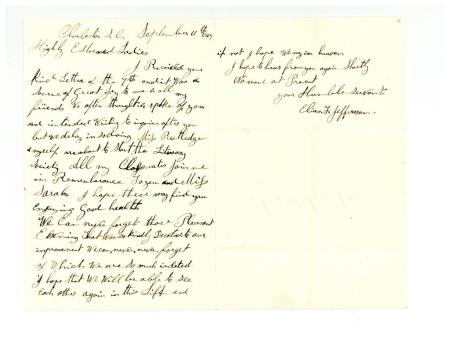 Charleston S.C. September 11th
Highly Esteemed Ladies
I Received your
Kind Letter of the 7th and it Was a
Source of Great Joy to me & all my
friends We often thought & spoke of you
and intended Writing to inquire after you
but we delay in so doing Miss Rutledge
& myself are about to Start the Literary
Society all my Classmates Join me
in Rememberance To you and Miss
Sarah I hope these may find you
Enjoying Good health
We Can never forget those Pleasant
Evening that was so kindly Devoted to our
improvement We can, never, never, forget
of Which We are So much indebted
I hope that We Will be able to See
Each other again in this Life and
if not I hope We may in heaven
I hope to hear from you again Shortly
No more at Present
your Humble Servant
Jefferson.